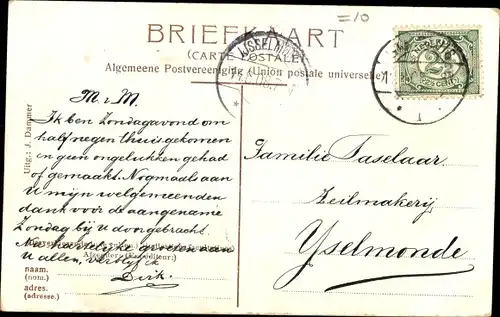 =10
BRIEFKAART
(CARTE POSTALE)
Algemeene Postvereeniging (Union postale universelle)
IJSSELMONDE
Uitg.: J. Dammer
M & M.
Ik ben Zondagavond om
half negen thuis gekomen
en geen ongelukken gehad
of gemaakt. Nogmaals aan
U mijn welgemeenden
dank voor de aangename
Zondag bij U doorgebracht.
Nu hartelijke groeten aan
U allen, verblijf ik
Dirk.
(Expéditeur:)
naam.
(nom.)
adres.
(adresse.)
Familie Taselaar.
Zeilmakerij
Yselmonde